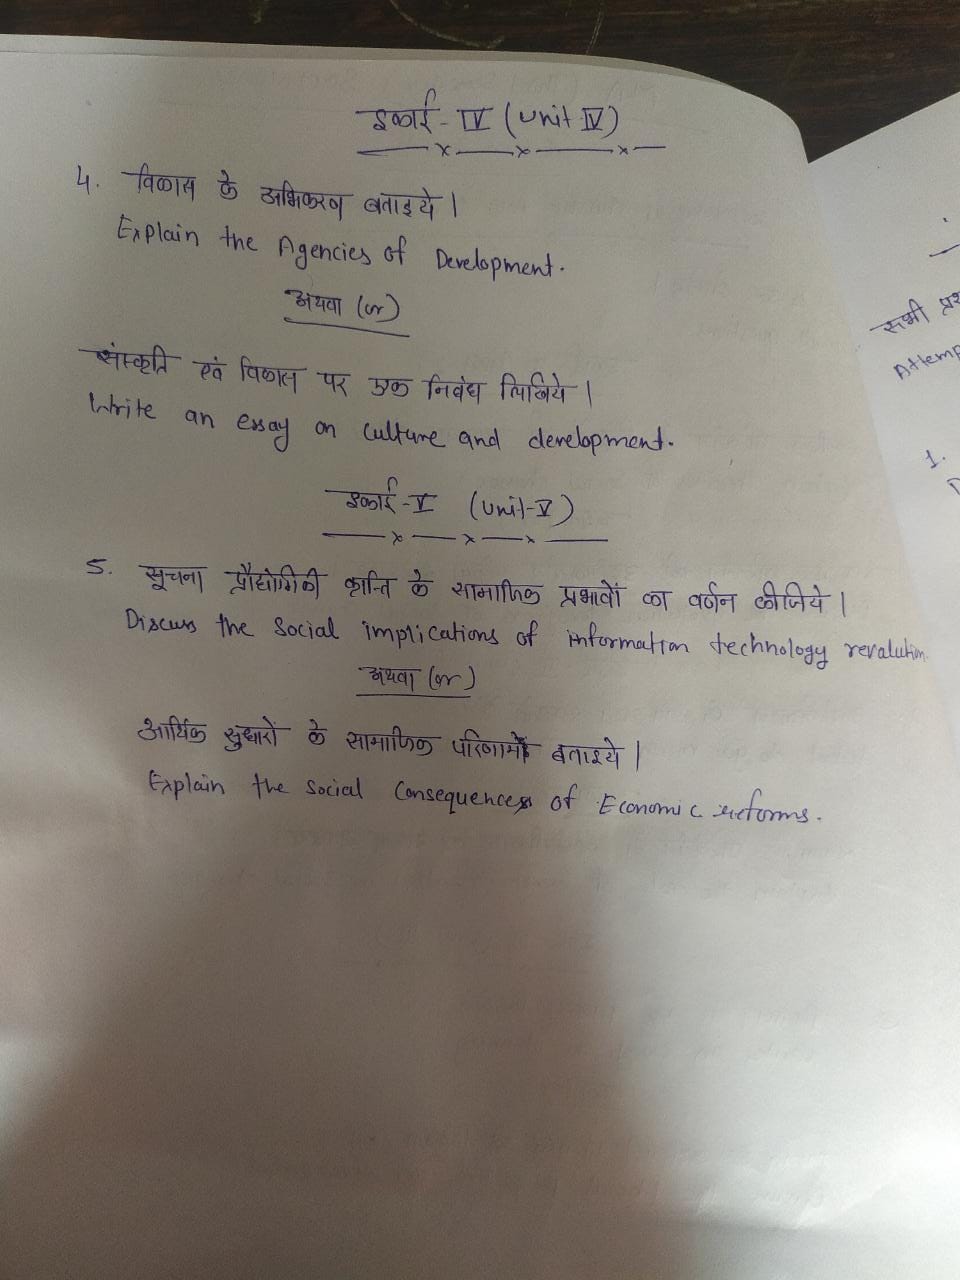 इकाई - IV (Unit IV)
4. विकास के अभिकरण बताइये।
Explain the Agencies of Development.
अथवा (or)
संस्कृति एवं विकास पर एक निबंध लिखिये।
Write an essay on culture and development.
इकाई - V (Unit-V)
5. सूचना प्रौद्योगिकी क्रान्ति के सामाजिक प्रभावों का वर्णन कीजिये।
Discuss the Social implications of information technology revalution.
अथवा (or)
आर्थिक सुधारों के सामाजिक परिणाम बताइये।
Explain the social Consequences of Economic reforms.
सभी
Attemp
1.